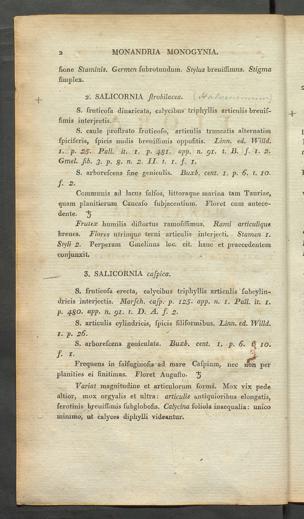 2 MONANDRIA MONOGYNIA.
sione Staminis. Germen subrotundum. Stylus breuissimus. Stigma
simplex.
2. SALICORNIA strobilacea.
S. fruticosa diuaricata, calycibus triphyllis articulis breuis-
simis interjectis.
S. caule prostrato fruticoso, articulis truncatis alternatim
spiciferis, spicis nudis breuissimis oppositis. Linn. ed. Willd.
1. p. 25. Pall. it. 1. p. 481. app. n. 91. t. B. f. 1. 2.
Gmel. sib. 3. p. 8. n. 2. II. t. 1. f. 1.
S. arborescens sine geniculis. Buxb. cent. 1. p. 6. t. 10.
f. 2.
Communis ad lacus salsos, littoraque marina tam Tauriae,
quam planitierum Caucaso subjacentium. Floret cum antece-
dente. ♄
Frutex humilis distortus ramosissimus. Rami articulique
breues. Flores utrinque terni articulis interjecti. Stamen 1.
Styli 2. Perperam Gmelinus loc. cit. hanc et praecedentem
conjunxit.
3. SALICORNIA caspica.
S. fruticosa erecta, calycibus triphyllis articulis subcylin-
dricis interjectis. Marsch. casp. p. 125. app. n. 1. Pall. it. 1.
p. 480. app. n. 91. t. D. A. f. 2.
S. articulis cylindricis, spicis filiformibus. Linn. ed. Willd.
1. p. 26.
S. arborescens geniculata. Buxb. cent. 1. p. 6. 10.
f. 1.
Frequens in salsuginosis ad mare Caspium, nec non per
planities ei finitimas. Floret Augusto. ♄
Variat magnitudine et articulorum forma. Mox vix pede
altior, mox orgyalis et ultra: articulis antiquioribus elongatis,
serotinis breuissimis subglobosis. Calycina foliola inaequalia: unico
minimo, ut calyces diphylli videantur.